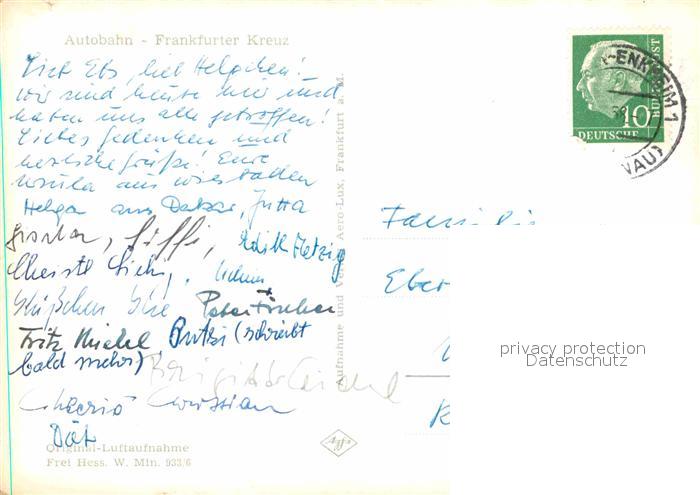 Autobahn - Frankfurter Kreuz
Lieb Ebs, lieb Helgchen! -
wir sind heute hier und
haben uns alle getroffen!
Liebes Gedenken und
herzliche Grüße! Eure
Ursula aus Wiesbaden
Helga aus Dakar, Jutta
Giffi, Edith
Christl
Küßchen Ilse Peter Fischer
Fritz Michel Putzi (schreibt
bald mehr) Brigitte
Cheerio Christian
Original-Luftaufnahme
Frei Hess. W. Min. 933/6
Aufnahme und Verlag Aero-Lux, Frankfurt a. M.
Agfa
10
DEUTSCHE
BUNDESPOST
-ENKHEIM 1
NAU)
Familie
Eber
privacy protection
Datenschutz